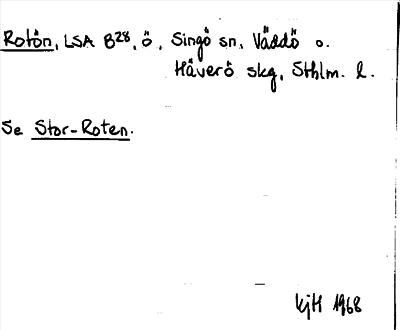 Rotön, LSA B28, ö, Singö sn, Väddö o.
Häverö skg, Sthlm. l.
Se Stor-Roten.
KjH 1968